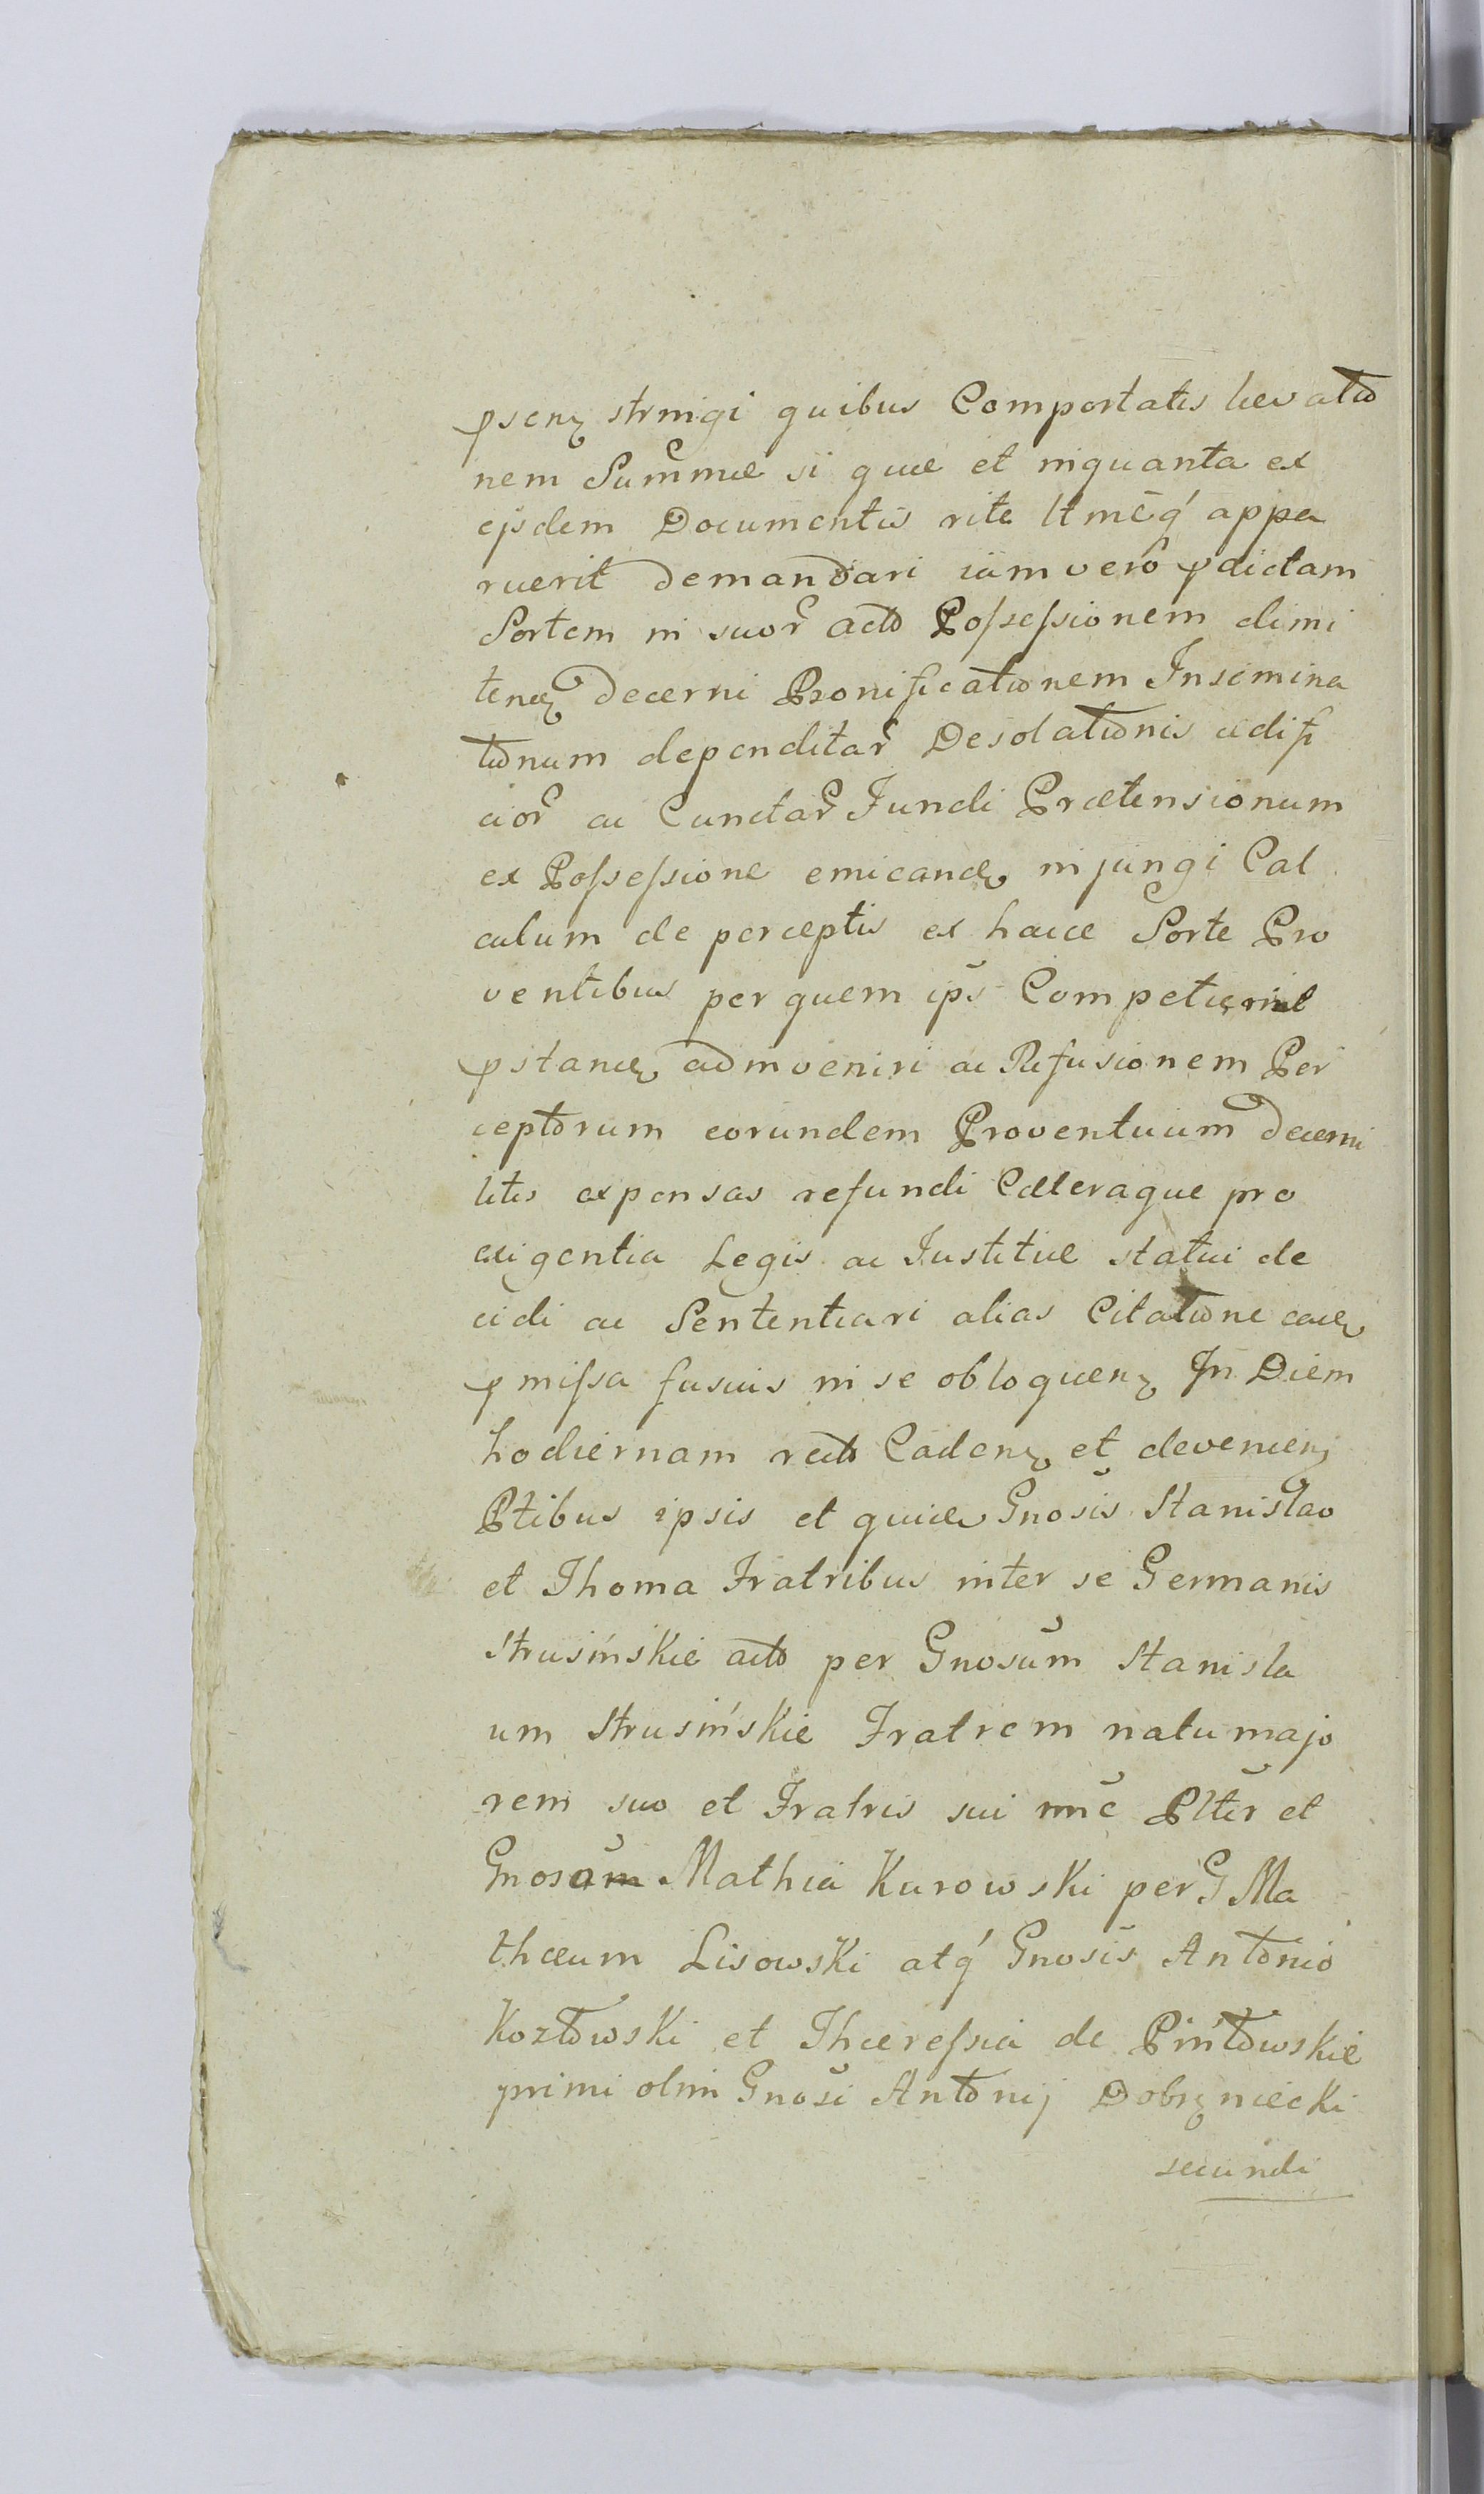 pseñ stringi quibus Comportatis levatio
nem Sum̃mæ si quæ et inquanta ex
ejsdem Documentis rite ltmeq́ appa
ruerit demandari iam vero pdictam
Sortem in suor̃ acto Poſseſsionem dimi
tenđ decerni Bonificationem Insemina
tionum dependitar̃ Desolationis ædifi
cior̃ ac Cunctar̃ Fundi Prætensionum
ex Poſseſsione emicanđ injungi Cal
culum de perceptis ex hacce Sorte Pro
ventibus per quem ips̃ Competierint
pstanđ adinveniri ac Refusionem Per
ceptorum eorundem Proventuum decerni
litis expensas refundi Cæteraque pro
exigentia Legis ac Justitiæ statui de
cidi ac Sententiari alias Citatione
pmiſsa fusius in se obloqueñ In Diem
hodiernam recto Cadeñ et devenieñ
Ptibus ipsis et quide Gnosis̃ Stanislao
et Thoma Fratribus inter se Germanis
Strusińskie acto per Gnosũm Stanisla
um Strusińskie Fratrem natu majo
rem suo et Fratris sui nnẽ Pltẽr et
Gnosam Mathia Kurowski per G Ma
thæum Lisowski atq́ Gnosis̃ Antonio
Kozłowski et Thæreſsia de Pińtowskie
primi olim Gnosĩ Antonij Dobrzniecki
secundi